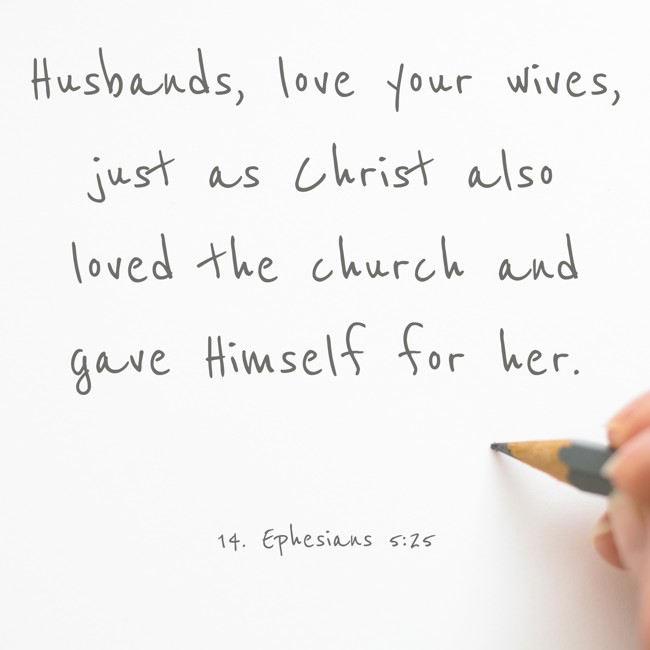 Husbands, love your wives,
just as Christ also
loved the church and
gave Himself for her.
14. Ephesians 5:25